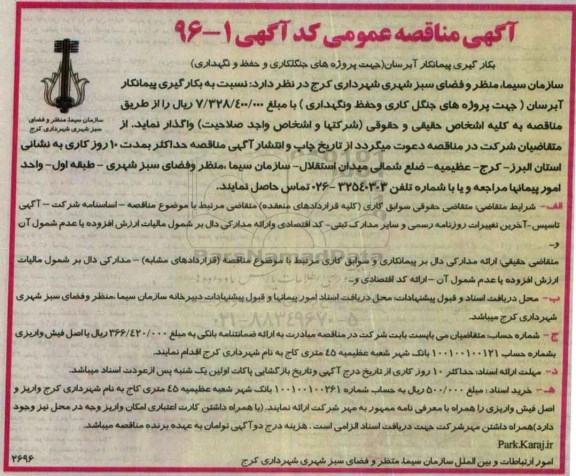 آگهی مناقصه عمومی کد آگهی ۱-۹۶
بکار گیری پیمانکار آبرسان(جهت پروژه های جنگلکاری و حفظ و نگهداری)
سازمان سیما، منظر و فضای
سبز شهری شهرداری کرج
سازمان سیما، منظر و فضای سبز شهری شهرداری کرج در نظر دارد: نسبت به بکار گیری پیمانکار
آبرسان ( جهت پروژه های جنگل کاری وحفظ ونگهداری ) با مبلغ ۷/۳۲۸/٤۰۰/۰۰۰ ریال را از طریق
مناقصه به کلیه اشخاص حقیقی و حقوقی (شرکتها و اشخاص واجد صلاحیت) واگذار نماید. از
متقاضیان شرکت در مناقصه دعوت میگردد از تاریخ چاپ و انتشار آگهی مناقصه حداکثر بمدت ۱۰ روز کاری به نشانی
استان البرز- کرج- عظیمیه- ضلع شمالی میدان استقلال- سازمان سیما ،منظر وفضای سبز شهری - طبقه اول- واحد
امور پیمانها مراجعه و یا با شماره تلفن ۳۲۵٤۰۳۰۳-۰۲۶ تماس حاصل نمایند.
الف- شرایط متقاضی: متقاضی حقوقی سوابق کاری (کلیه قراردادهای منعقده) متقاضی مرتبط با موضوع مناقصه – اساسنامه شرکت – آگهی
تاسیس -آخرین تغییرات روزنامه رسمی و سایر مدارک ثبتی- کد اقتصادی وارائه مدارکی دال بر شمول مالیات ارزش افزوده یا عدم شمول آن
و...
متقاضی حقیقی: ارائه مدارکی دال بر پیمانکاری و سوابق کاری مرتبط با موضوع مناقصه (قراردادهای مشابه) – مدارکی دال بر شمول مالیات
ارزش افزوده یا عدم شمول آن -ارائه کد اقتصادی و...
ب- محل دریافت اسناد و قبول پیشنهادات: محل دریافت اسناد امور پیمانها و قبول پیشنهادات دبیرخانه سازمان سیما ،منظر وفضای سبز شهری
شهرداری کرج میباشد.
ج- شماره حساب: متقاضیان می بایست بابت شرکت در مناقصه مبادرت به ارائه ضمانتنامه بانکی به مبلغ ۳۶۶/٤۲۰/۰۰۰ ریال یا اصل فیش واریزی
بشماره حساب ۱۰۰۱۰۰۱۰۰۱۲۱ بانک شهر شعبه عظیمیه ٤۵ متری کاج به نام شهرداری کرج اقدام نمایند.
د- مهلت ارائه اسناد: حداکثر ۱۰ روز کاری از تاریخ درج آگهی وتاریخ بازگشایی پاکات اولین یک شنبه پس ازعودت اسناد میباشد.
هـ- خرید اسناد : مبلغ ۵۰۰/۰۰۰ ریال به حساب شماره ۱۰۰۱۰۰۱۰۰۲۶۱ بانک شهر شعبه عظیمیه ٤۵ متری کاج به نام شهرداری کرج واریز و
اصل فیش واریزی را همراه با معرفی نامه ممهور به مهر شرکت ارائه نمایند. (با همراه داشتن کارت اعتباری امکان واریز وجه در محل نیز وجود
دارد)همراه داشتن مهرشرکت جهت دریافت اسناد الزامی است . هزینه درج دوآگهی توامان به عهده برنده مناقصه میباشد.
Park.Karaj.ir
امور ارتباطات و بین الملل سازمان سیما، منظر و فضای سبز شهری شهرداری کرج
۲۶۹۶
۰۲۱-۸۸۳٤۹۶۷۰-۵